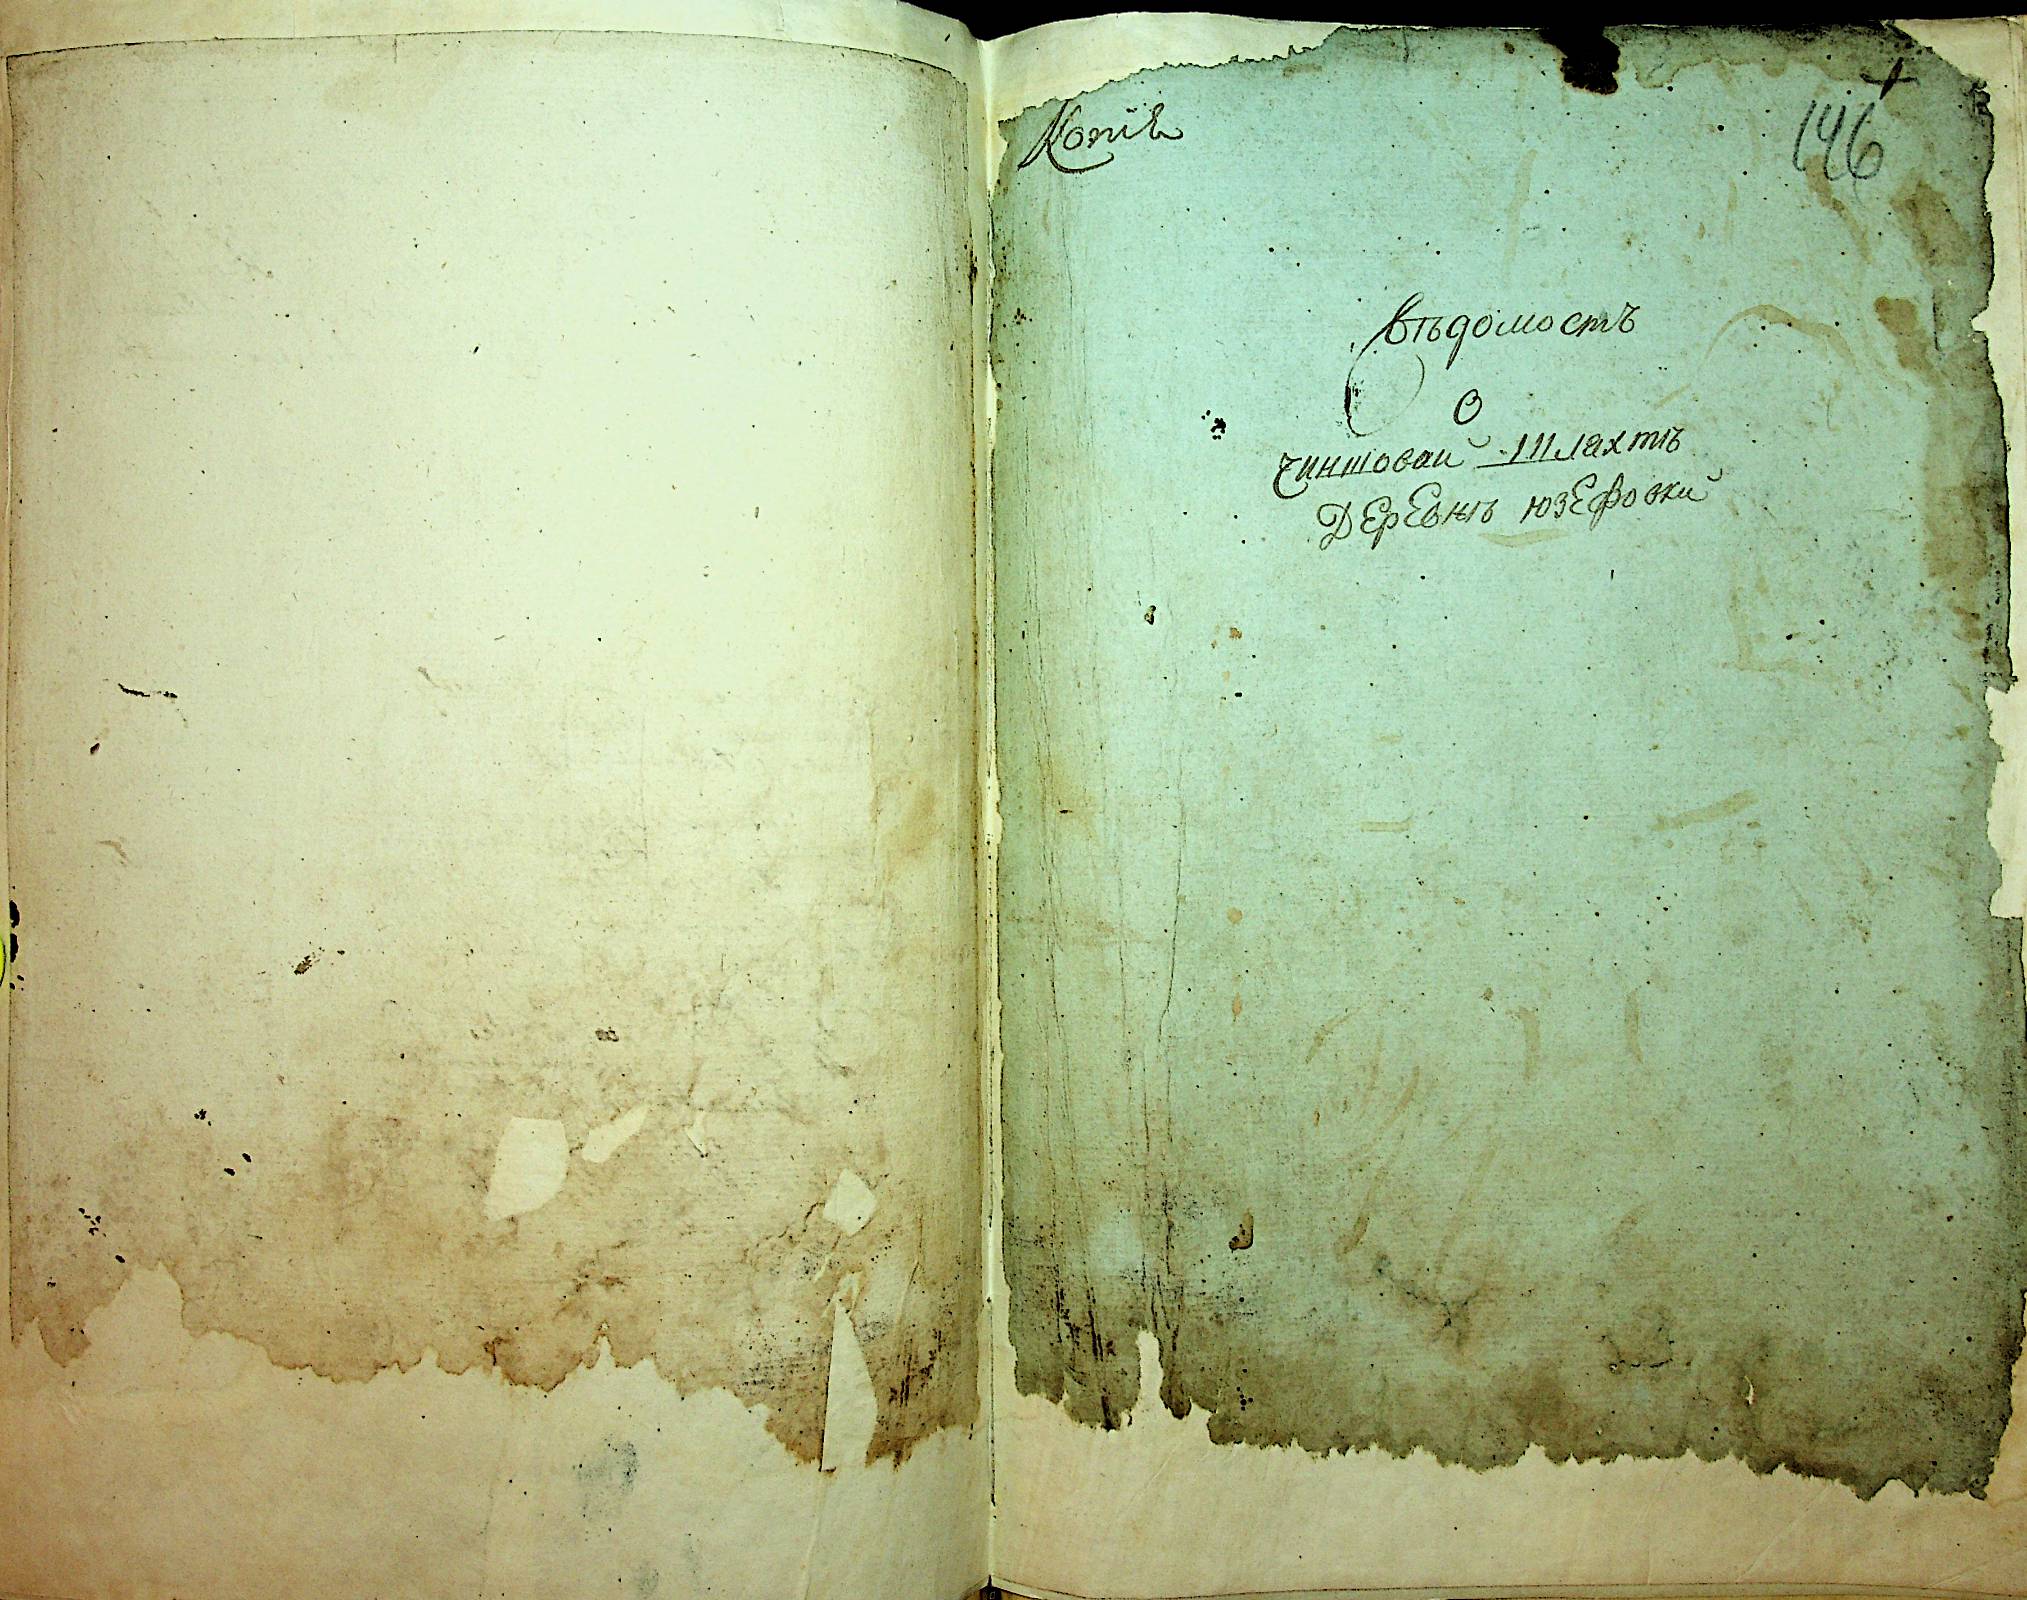 Копіѧ
146
Вѣдомостъ
О
чиншовай Шляхтѣ
Деревнѣ Юзефовки